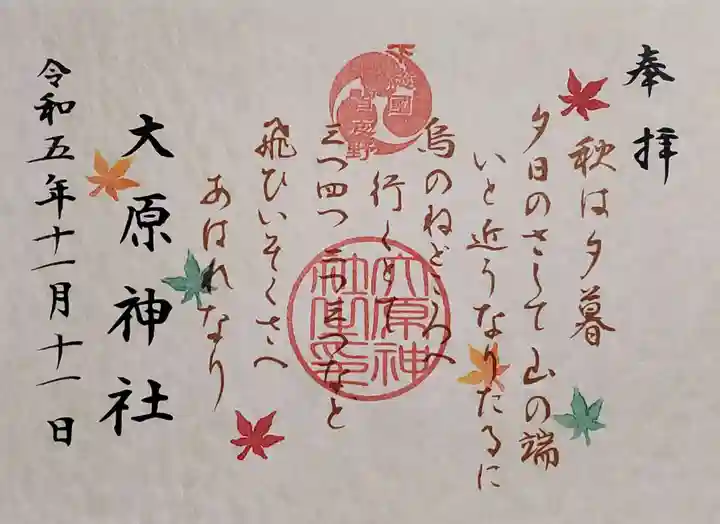 奉拝
秋は夕暮
夕日のさして山の端
いと近うなりたるに
烏のねどころへ
行くとて
三つ四つ二つ三つなど
飛びいそぐさへ
あはれなり
大原神社
令和五年十一月十一日
下總國
大原神社